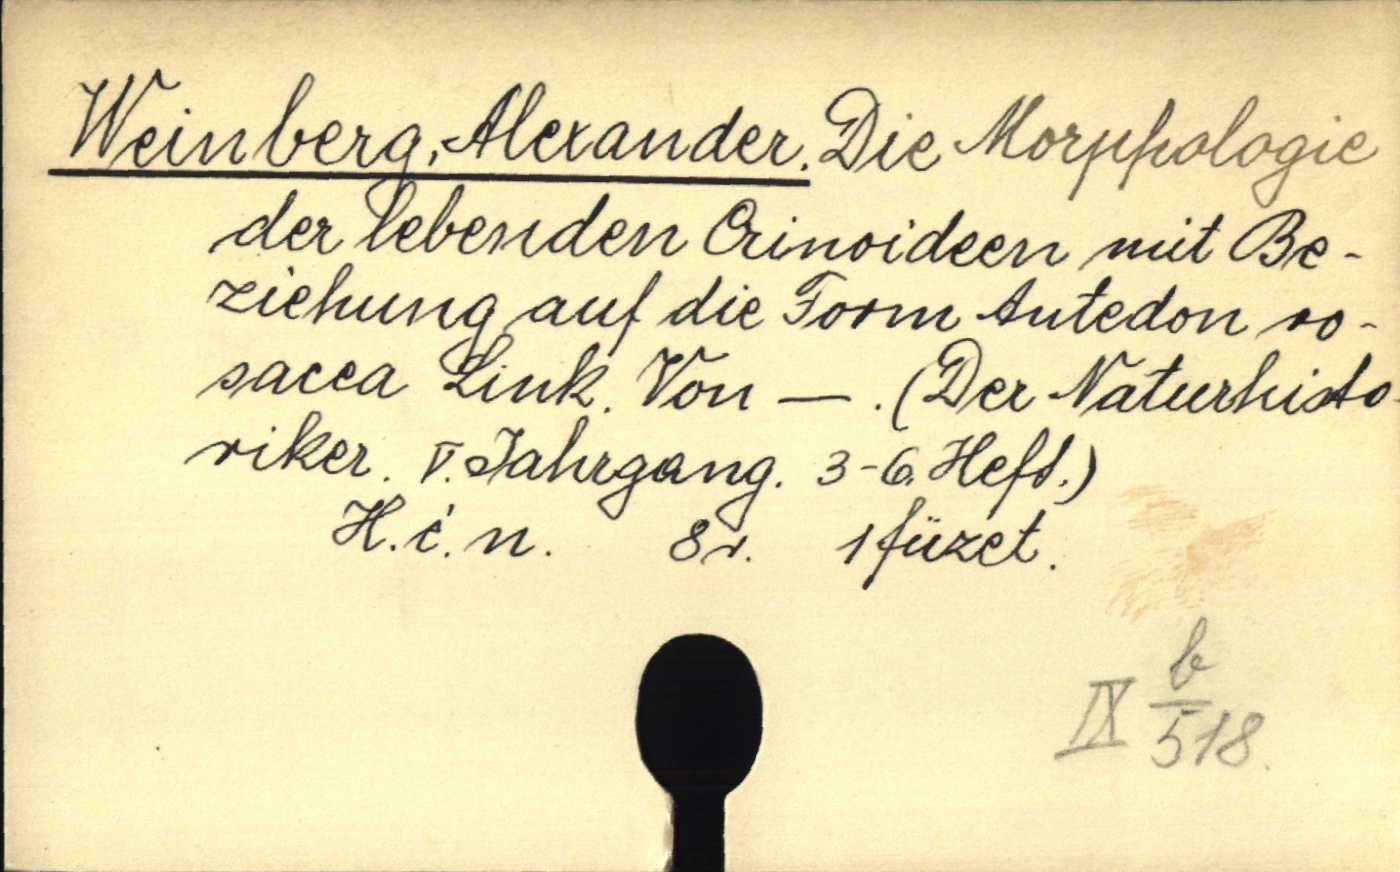 Weinberg, Alexander. Die Morphologie
der lebenden Crinoideen mit Be-
ziehung auf die Form Antedon ro-
sacea Link. Von —. (Der Naturhisto-
riker. V. Jahrgang. 3-6. Heft.)
H. é. n. 8r. 1 füzet.
IX b/518.